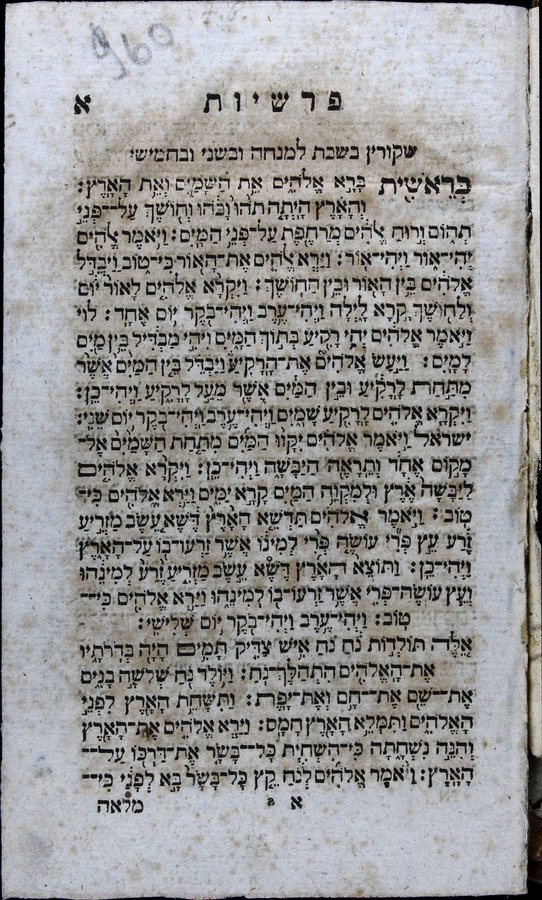 960
פרשיות א
שקורין בשבת למנחה ובשני ובחמישי
בְּרֵאשִׁית בָּרָא אֱלֹהִים אֵת הַשָּׁמַיִם וְאֵת הָאָרֶץ:
וְהָאָרֶץ הָיְתָה תֹהוּ וָבֹהוּ וְחוֹשֶׁךְ עַל־פְּנֵי
תְהוֹם וְרוּחַ אֱלֹהִים מְרַחֶפֶת עַל־פְּנֵי הַמָּיִם: וַיֹּאמֶר אֱלֹהִים
יְהִי־אוֹר וַיְהִי־אוֹר: וַיַּרְא אֱלֹהִים אֶת־הָאוֹר כִּי־טוֹב וַיַּבְדֵּל
אֱלֹהִים בֵּין הָאוֹר וּבֵין הַחוֹשֶׁךְ: וַיִּקְרָא אֱלֹהִים לָאוֹר יוֹם
וְלַחוֹשֶׁךְ קָרָא לָיְלָה וַיְהִי־עֶרֶב וַיְהִי־בֹקֶר יוֹם אֶחָד: לוי
וַיֹּאמֶר אֱלֹהִים יְהִי רָקִיעַ בְּתוֹךְ הַמָּיִם וִיהִי מַבְדִּיל בֵּין מַיִם
לָמָיִם: וַיַּעַשׂ אֱלֹהִים אֶת־הָרָקִיעַ וַיַּבְדֵּל בֵּין הַמַּיִם אֲשֶׁר
מִתַּחַת לָרָקִיעַ וּבֵין הַמַּיִם אֲשֶׁר מֵעַל לָרָקִיעַ וַיְהִי־כֵן:
וַיִּקְרָא אֱלֹהִים לָרָקִיעַ שָׁמָיִם וַיְהִי־עֶרֶב וַיְהִי־בֹקֶר יוֹם שֵׁנִי:
ישראל וַיֹּאמֶר אֱלֹהִים יִקָּווּ הַמַּיִם מִתַּחַת הַשָּׁמַיִם אֶל־
מָקוֹם אֶחָד וְתֵרָאֶה הַיַּבָּשָׁה וַיְהִי־כֵן: וַיִּקְרָא אֱלֹהִים
לַיַּבָּשָׁה אֶרֶץ וּלְמִקְוֵה הַמַּיִם קָרָא יַמִּים וַיַּרְא אֱלֹהִים כִּי־
טוֹב: וַיֹּאמֶר אֱלֹהִים תַּדְשֵׁא הָאָרֶץ דֶּשֶׁא עֵשֶׂב מַזְרִיעַ
זֶרַע עֵץ פְּרִי עוֹשֶׂה פְּרִי לְמִינוֹ אֲשֶׁר זַרְעוֹ־בוֹ עַל־הָאָרֶץ
וַיְהִי־כֵן: וַתּוֹצֵא הָאָרֶץ דֶּשֶׁא עֵשֶׂב מַזְרִיעַ זֶרַע לְמִינֵהוּ
וְעֵץ עוֹשֶׂה־פְּרִי אֲשֶׁר זַרְעוֹ־בוֹ לְמִינֵהוּ וַיַּרְא אֱלֹהִים כִּי־
טוֹב: וַיְהִי־עֶרֶב וַיְהִי־בֹקֶר יוֹם שְׁלִישִׁי:
אֵלֶּה תּוֹלְדוֹת נֹחַ נֹחַ אִישׁ צַדִּיק תָּמִים הָיָה בְּדֹרֹתָיו
אֶת־הָאֱלֹהִים הִתְהַלֶּךְ־נֹחַ: וַיּוֹלֶד נֹחַ שְׁלֹשָׁה בָנִים
אֶת־שֵׁם אֶת־חָם וְאֶת־יָפֶת: וַתִּשָּׁחֵת הָאָרֶץ לִפְנֵי
הָאֱלֹהִים וַתִּמָּלֵא הָאָרֶץ חָמָס: וַיַּרְא אֱלֹהִים אֶת־הָאָרֶץ
וְהִנֵּה נִשְׁחָתָה כִּי־הִשְׁחִית כָּל־בָּשָׂר אֶת־דַּרְכּוֹ עַל־
הָאָרֶץ: וַיֹּאמֶר אֱלֹהִים לְנֹחַ קֵץ כָּל־בָּשָׂר בָּא לְפָנַי כִּי־
א a מלאה